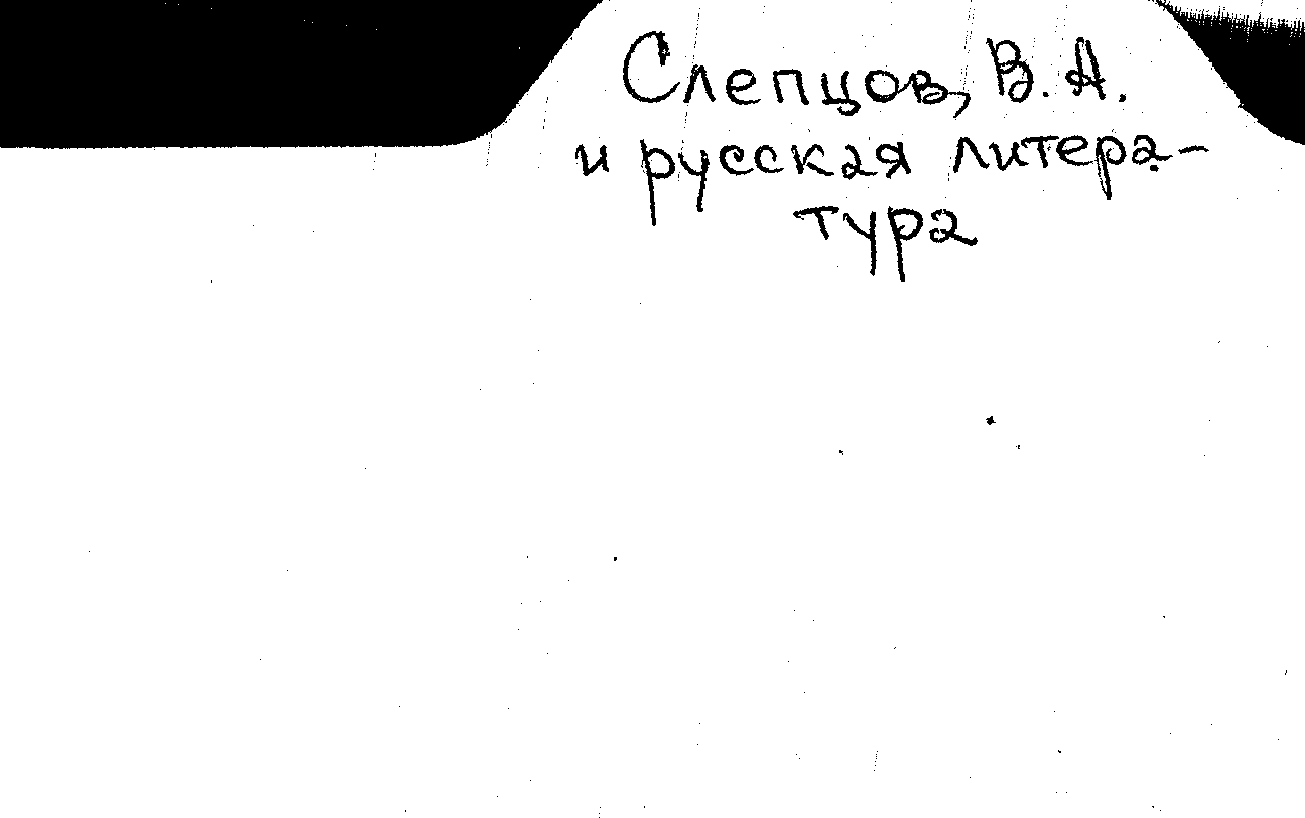 Слепцов, В. А.
и русская литера-
тура